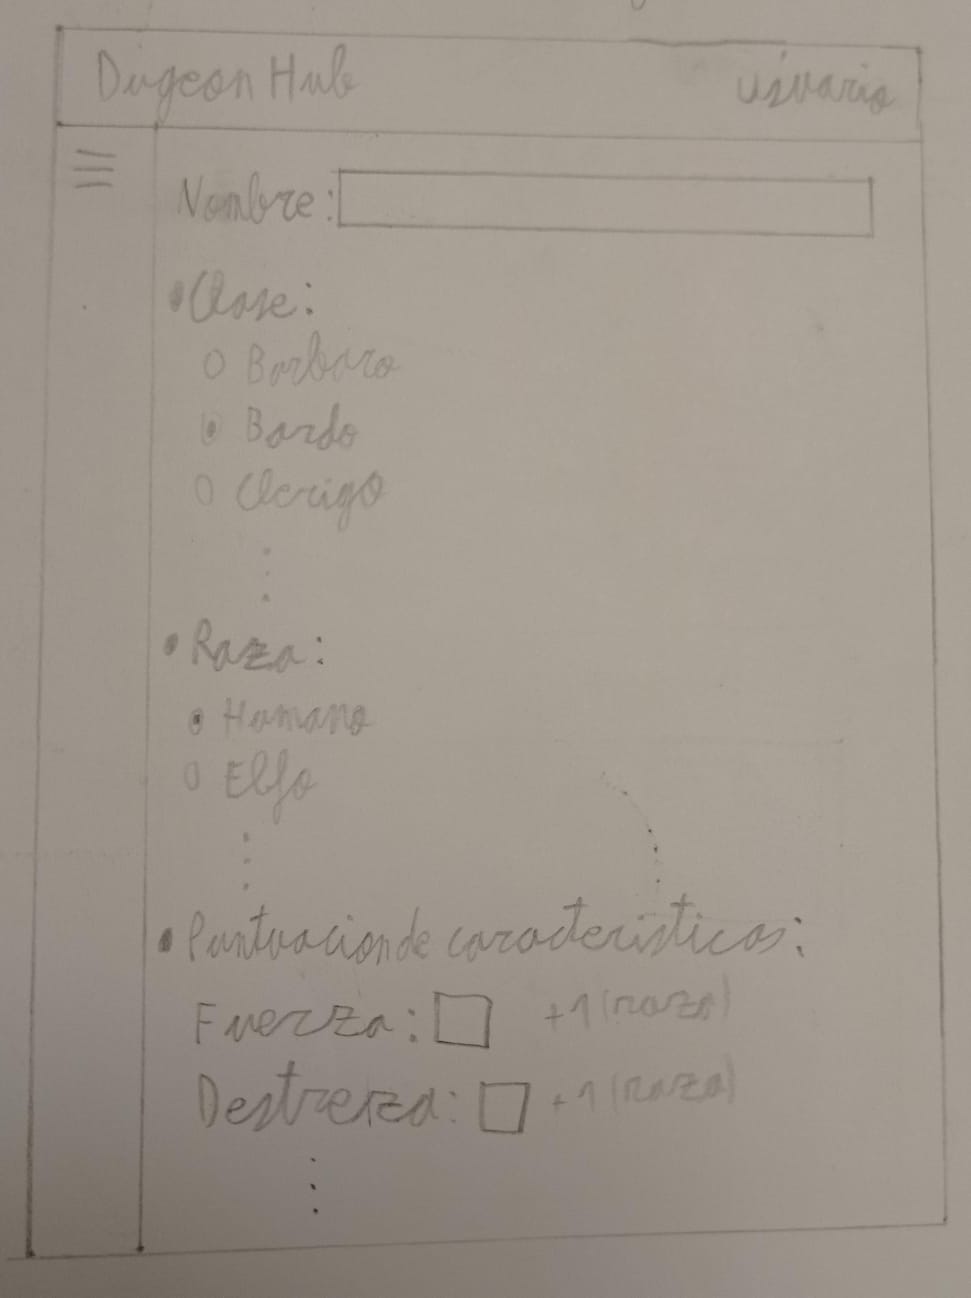 Dugeon Hub usuario
Nombre:
• Clase:
Barbaro
Bardo
Clerigo
• Raza:
Humano
Elfo
• Puntuacion de caracteristicas:
Fuerza: +1 (raza)
Destreza: +1 (raza)